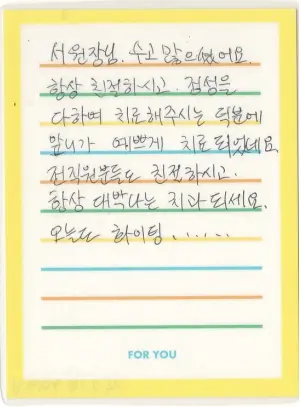 서원장님. 수고 많으셨어요.
항상 친절하시고. 정성을
다하여 치료해주시는 덕분에
앞니가 예쁘게 치료되었네요.
전직원분들도 친절하시고.
항상 대박나는 치과 되세요.
오늘도 화이팅 . . . . . .
FOR YOU